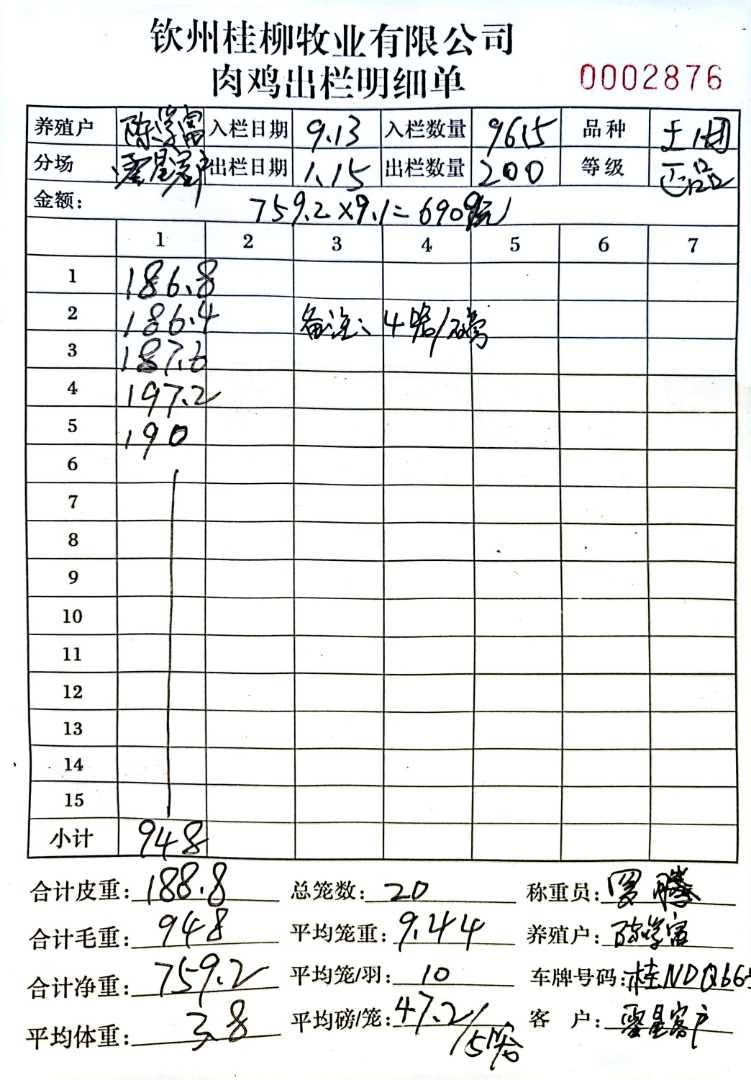 钦州桂柳牧业有限公司
肉鸡出栏明细单 0002876
养殖户 陈学富 入栏日期 9.13 入栏数量 9615 品种 土1团
分场 零星客户 出栏日期 1.15 出栏数量 200 等级 正品
金额: 759.2×9.1=6909元
1 2 3 4 5 6 7
1 186.8
2 186.4 备注: 4笼/磅
3 187.6
4 197.2
5 190
6
7
8
9
10
11
12
13
14
15
小计 948
合计皮重: 188.8 总笼数: 20 称重员: 罗腾
合计毛重: 948 平均笼重: 9.44 养殖户: 陈学富
合计净重: 759.2 平均笼/羽: 10 车牌号码: 桂NDQ665
平均体重: 3.8 平均磅/笼: 47.2/5 客 户: 零星客户